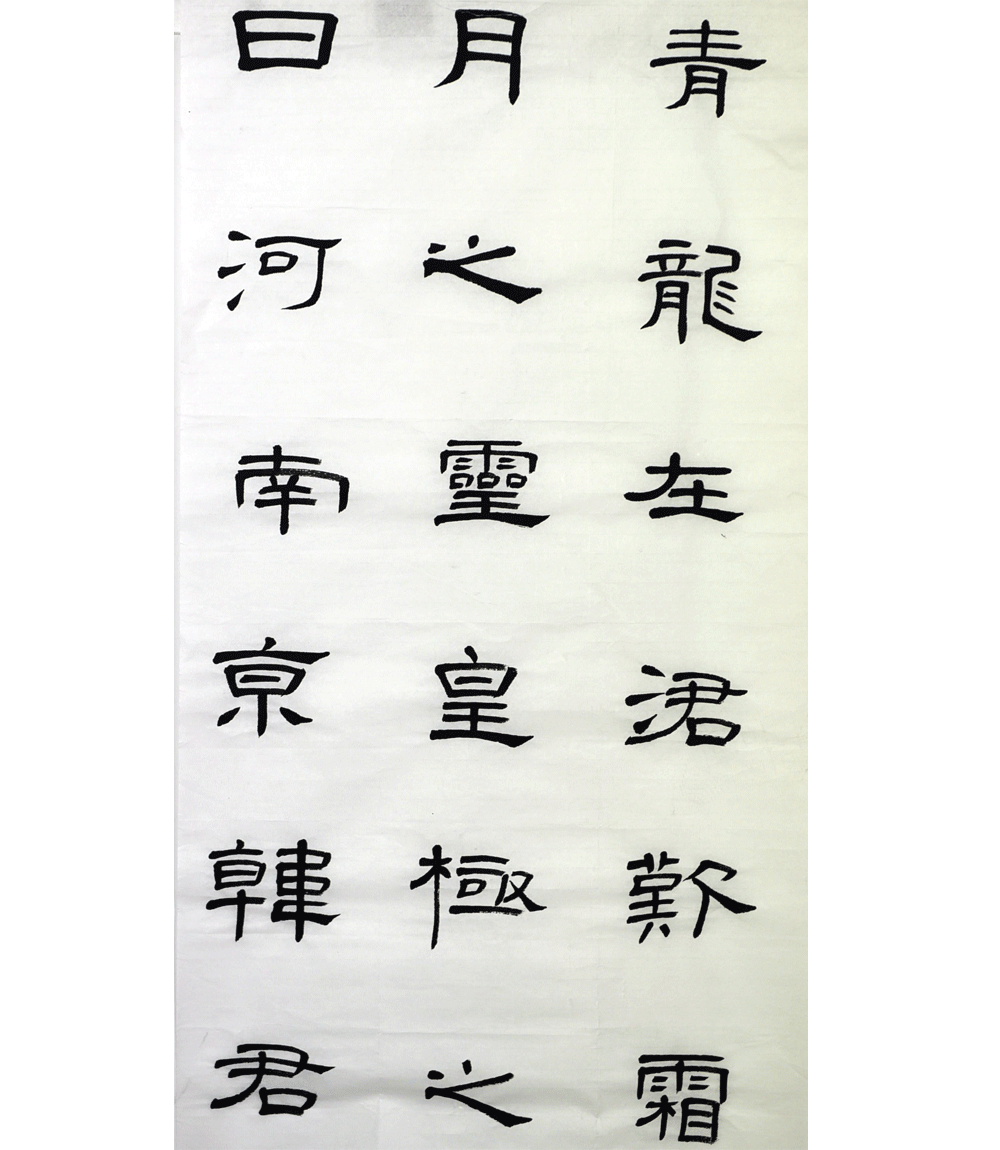 青龍在涒歎霜
月之靈皇極之
日河南京韓君